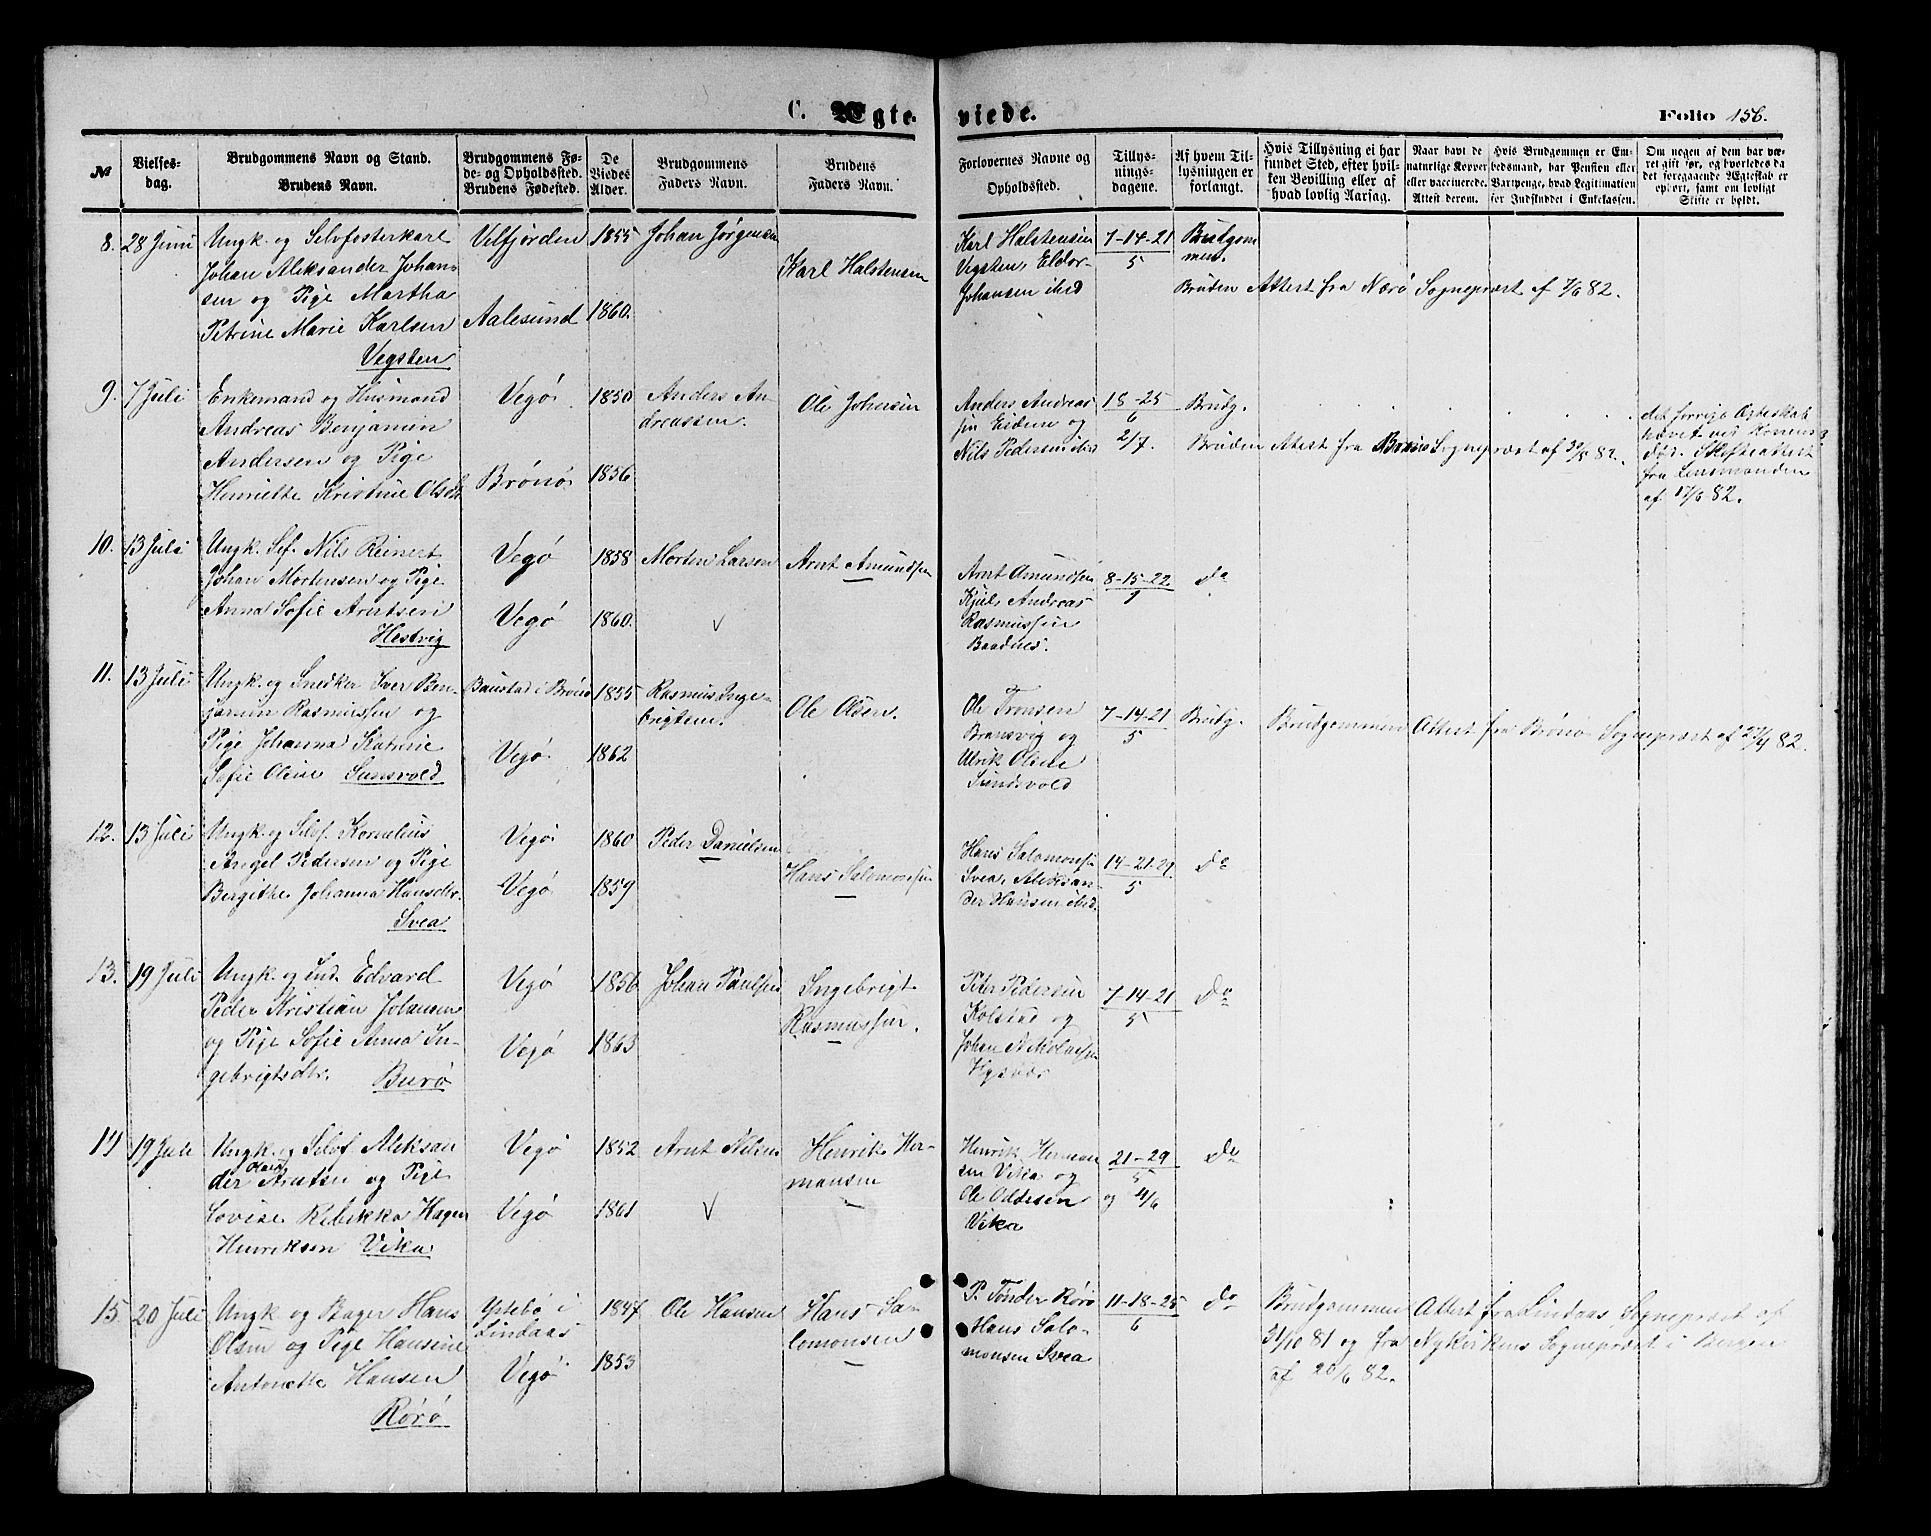 C. Ægte-
viede.
Folio 156.
№
Vielses-
dag.
Brudgommens Navn og Stand.
Brudens Navn.
Brudgommens Fø-
de- og Opholdssted.
Brudens Fødested.
De
Viedes
Alder.
Brudgommens
Faders Navn.
Brudens
Faders Navn.
Forlovernes Navne og
Opholdssted.
Tillys-
nings-
dagene.
Af hvem Til-
lysningen er
forlangt.
Hvis Tillysning ei har
fundet Sted, efter hvil-
ken Bevilling eller af
hvad lovlig Aarsag.
Naar havt de
naturlige Kopper
eller vaccinerede.
Attest derom.
Hvis Brudgommen er Em-
bedsmand, har Pension eller
Vartpenge, hvad Legitimation
for Indskuddet i Enkekassen.
Om nogen af dem har væ-
ret gift før, og hvorledes da
det foregaaende Ægteskab er
ophørt, samt om lovligt
Skifte er holdt.
8. 28 Juni
Ungk. og Selvfosterkarl
Johan Aleksander Johan-
sen og Pige Martha
Petrine Marie Karlsen
Vegsten
Velfjorden 1855
Aalesund 1860.
Johan Jørgensen
Karl Halstensen
Karl Halstensen
Vegsten, Eldor
Johansen ibid
7-14-21
5
Brudgom
men.
Bruden Attest fra Nærø Sognepræst af 7/6 82.
9. 7 Juli
Enkemand og Husmand
Andreas Benjamin
Andersen og Pige
Henriette Kristine Olsdt.
Vegø 1850
Brønø 1856
Anders An-
dreassen.
Ole Johnsen
Anders Andreas
sen Eidem og
Nils Pedersen ibid
18-25
6
2/7.
Brudg.
Bruden Attest fra Brønø Sognepræst af 30/5 82.
det forrige Ægteskab
hævet ved Konens
død. Skifteattest
fra Lensmanden
af 17/6 82.
10. 13 Juli
Ungk. Sef. Nils Reinert
Johan Mortensen og Pige
Anna Sofie Arntsen
Hestvig
Vegø 1858
Vegø 1860.
Morten Larsen
Arnt Amundsen
Arnt Amundsen
Kjul, Andreas
Rasmussen
Baadnes.
8-15-22
Do
11. 13 Juli
Ungk. og Snedker Iver Ben-
jamin Rasmussen og
Pige Johanna Katrine
Sofie Oline Sunsvold
Baustad i Brønø 1855
Vegø 1862
Rasmus Inge-
brigtsen.
Ole Olsen.
Ole Tronsen
Bransvig og
Ulrik Olsen
Sundsvold
7-14-21
5
Brudg.
Brudgommen Attest fra Brønø Sognepræst af 27/4 82.
12. 13 Juli
Ungk. og Selvf. Kornelius
Angel Pedersen og Pige
Bergithe Johanna Hansdtr.
Svea
Vegø 1860
Vegø 1859
Peder Danielsen
Hans Salomonsen
Hans Salomonsen
Svea, Aleksan-
der Hansen ibid.
14-21-29
5
Do
13. 19 Juli
Ungk. og Ind. Edvard
Peder Kristian Johansen
og Pige Sofie Anna In-
gebrigtsdtr. Burø
Vegø 1856
Vegø 1863
Johan Paulsen
Ingebrigt
Rasmussen.
Peter Pedersen
Kolstad og
Johan Nikolaisen
7-14-21
5
Do
14 19 Juli
Ungk. og Selvf. Aleksan
der Olaus Arntsen og Pige
Lovise Rebekka Hagen
Henriksen Vika
Vegø 1852
Vegø 1861
Arnt Nilsen
Henrik Her-
mansen
Henrik Herman
sen Vika og
Ole Oldesen
Vika
21-29
5
og 4/6
Do
15 20 Juli
Ungk og Bager Hans
Olsen og Pige Hansine
Antonette Hansen
Rørø
Ystebø i
Lindaas 1847
Vegø 1853
Ole Hansen
Hans Sa-
lomonsen
P. Tønder Rørø
Hans Salo-
monsen Svea
11-18-25
6
Do
Brudgommen Attest fra Lindaas Sognepræst af
31/10 81 og fra Nykirkens Sognepræst i Bergen
af 20/6 82.